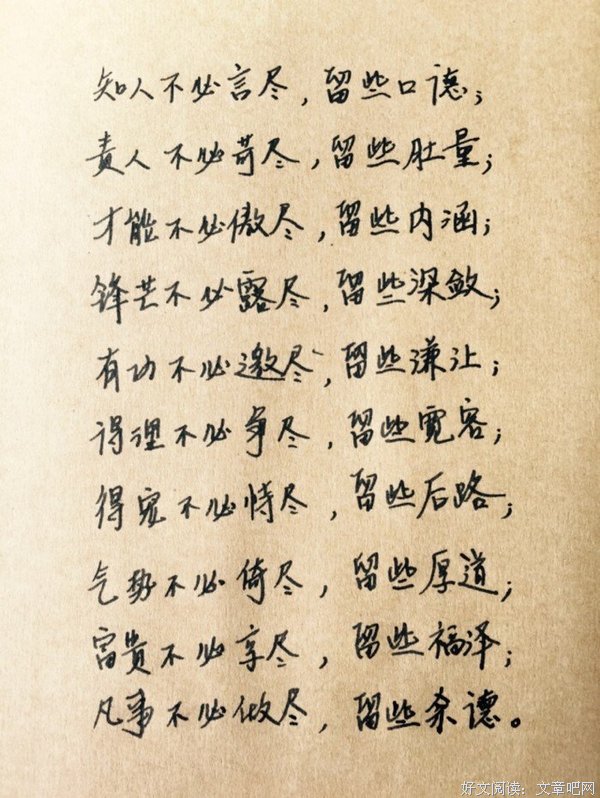 知人不必言尽，留些口德；
责人不必苛尽，留些肚量；
才能不必傲尽，留些内涵；
锋芒不必露尽，留些深敛；
有功不必邀尽，留些谦让；
得理不必争尽，留些宽容；
得宠不必恃尽，留些后路；
气势不必倚尽，留些厚道；
富贵不必享尽，留些福泽；
凡事不必做尽，留些余德。
好文阅读：文章吧网